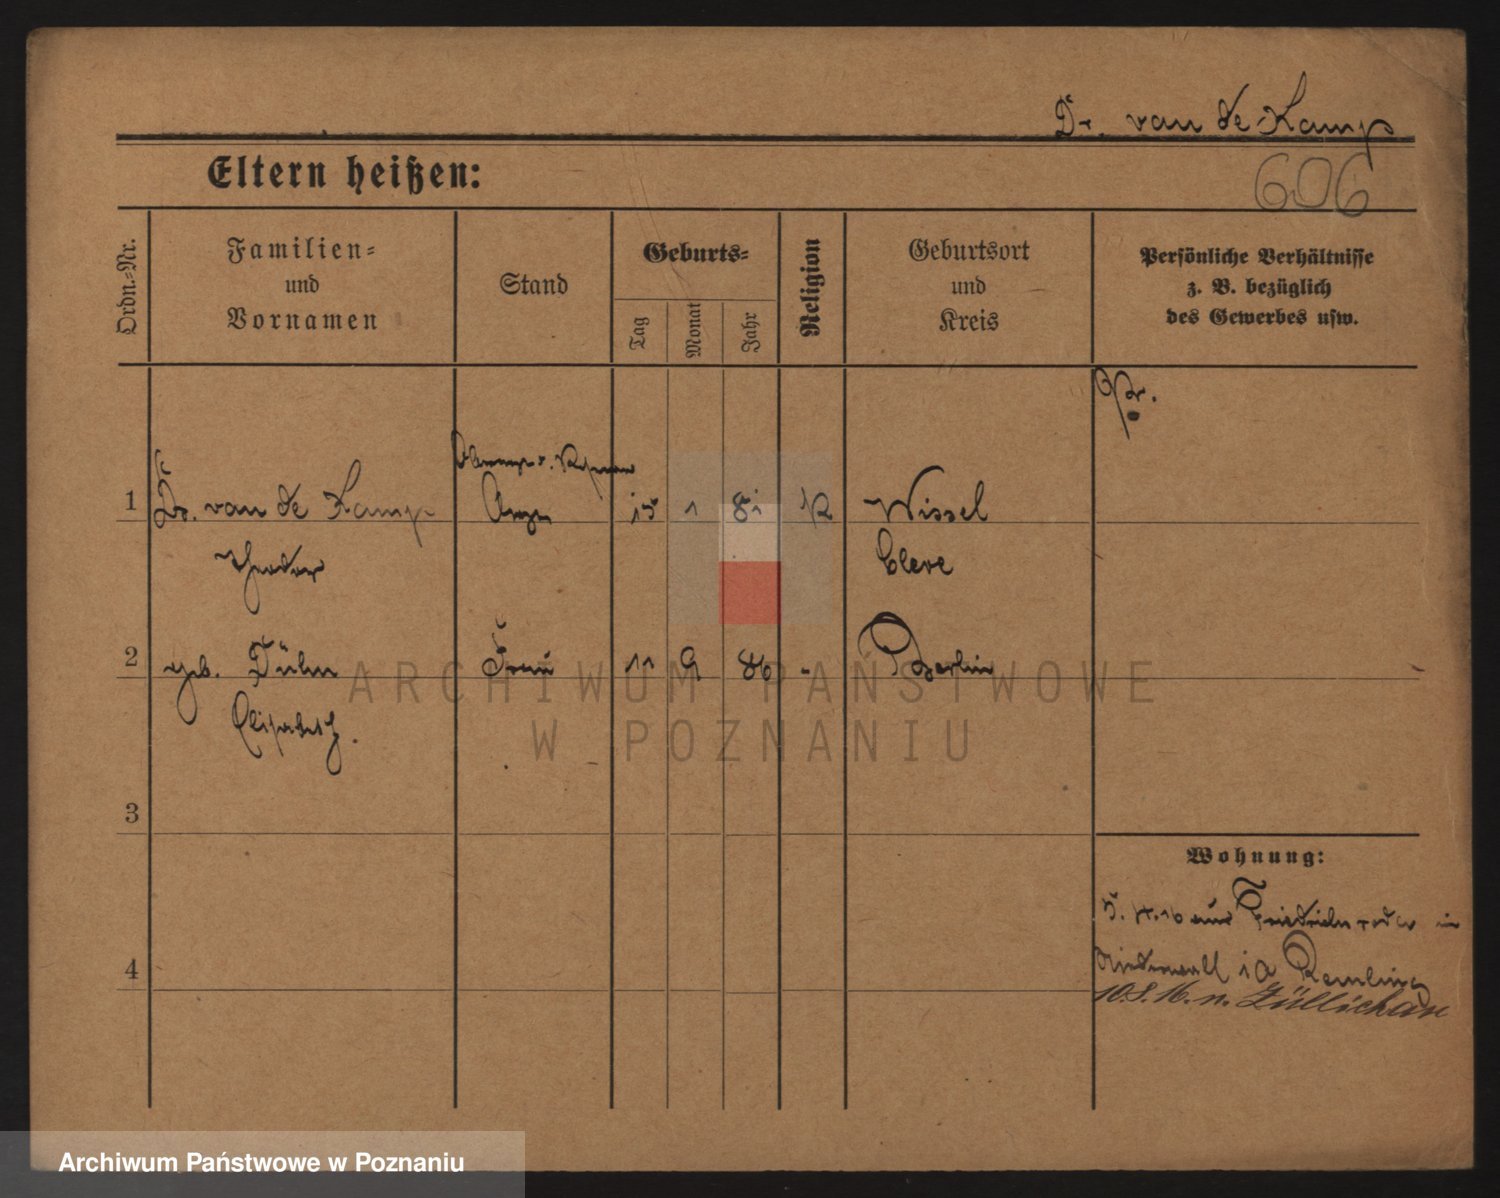 Dr. van de Kamp
606
Eltern heißen:
Ordn.-Nr.
Familien-
und
Vornamen
Stand
Geburts-
Tag
Monat
Jahr
Religion
Geburtsort
und
Kreis
Persönliche Verhältnisse
z. B. bezüglich
des Gewerbes usw.
Pr.
1 Dr. van de Kamp 15 1 81 K Wissel
Theodor Cleve
2 geb. Frau 11 9 86 - Berlin
Elisabeth.
3
Wohnung:
aus in
4
10.8.16. n. Züllichau
ARCHIWUM PAŃSTWOWE
W POZNANIU
Archiwum Państwowe w Poznaniu